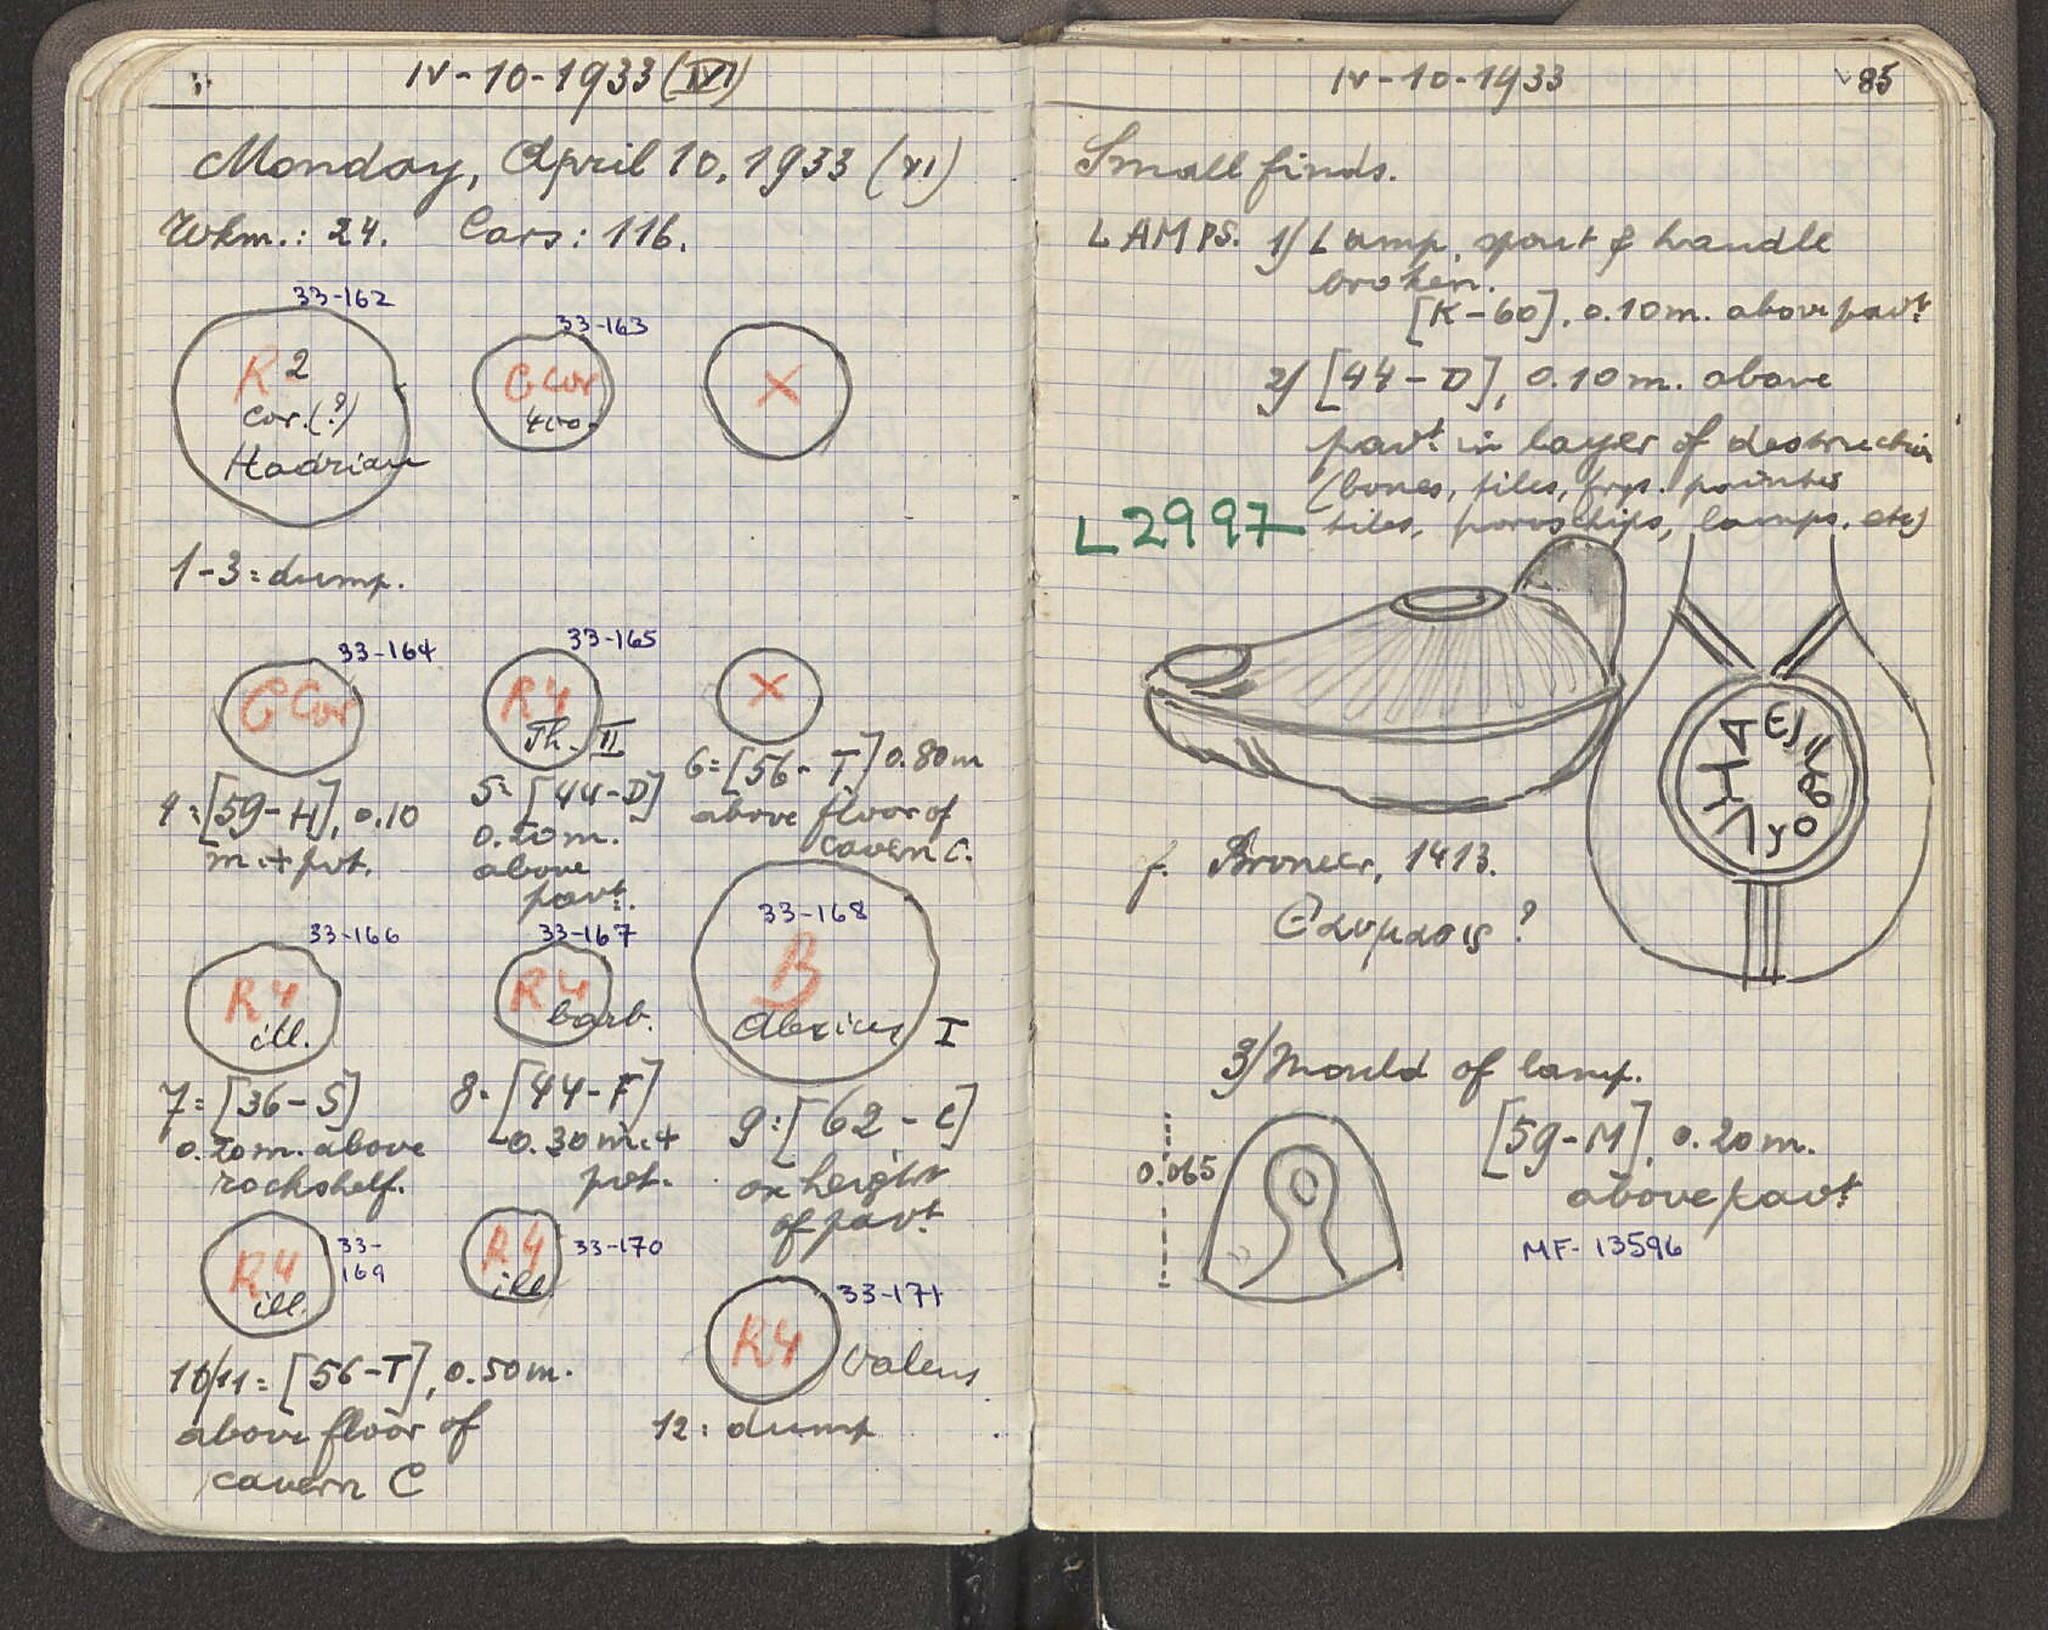 IV-10-1933 (VI)
Monday, April 10, 1933 (VI)
Wkm.: 24. Cars: 116.
33-162
R2
Cor.(?)
Hadrian
33-163
G Cor
400.
X
1-3 = dump.
33-164
G Cor
33-165
R4
Th. II
X
4 = [59-H], 0.10
m. + pvt.
5 = [44-D]
0.20 m.
above
pavt.
6 = [56-T] 0.80 m
above floor of
cavern C.
33-166
R4
ill.
33-167
R4
barb.
33-168
B
Alexius I
7 = [36-S]
0.20 m. above
rockshelf.
8 = [44-F]
0.30 m. +
pvt.
9 = [62-C]
on height
of pavt
R4
ill.
33-
169
R4
ill
33-170
33-171
R4
Valens
10/11 = [56-T], 0.50 m.
above floor of
cavern C
12 : dump
IV-10-1933 85
Small finds.
LAMPS. 1) Lamp, spout & handle
broken.
[K-60], 0.10 m. above pavt.
2) [44-D], 0.10 m. above
pavt. in layer of destruction
(bones, tiles, frgs. painted
tiles, poros chips, lamps, etc)
L2997
cf. Broneer, 1413.
3) Mould of lamp.
0.065
[59-M], 0.20 m.
above pavt.
MF-13596